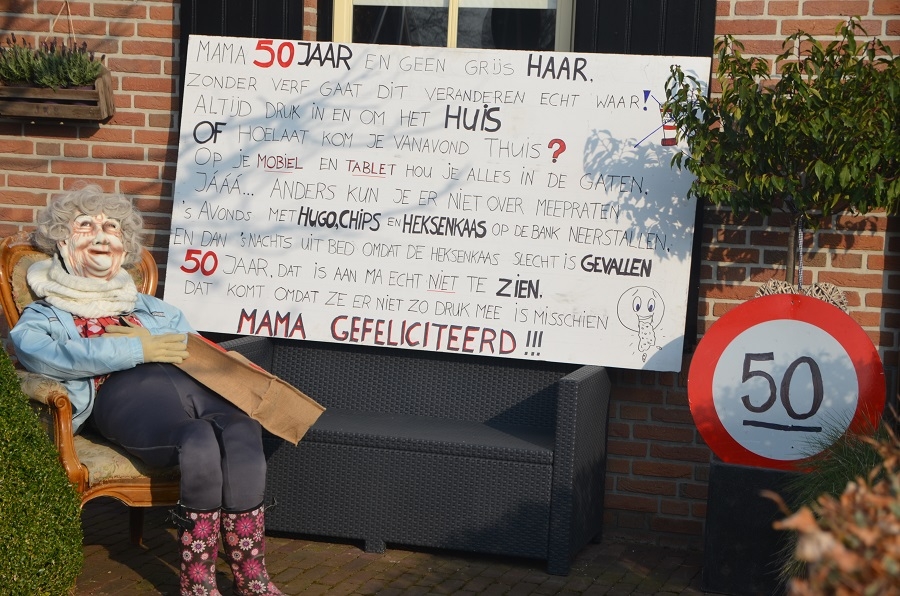 MAMA 50 JAAR EN GEEN GRIJS HAAR.
ZONDER VERF GAAT DIT VERANDEREN ECHT WAAR!
ALTIJD DRUK IN EN OM HET HUIS
OF HOELAAT KOM JE VANAVOND THUIS?
OP JE MOBIEL EN TABLET HOU JE ALLES IN DE GATEN.
JÁÁÁ... ANDERS KUN JE ER NIET OVER MEEPRATEN
'S AVONDS MET HUGO, CHIPS EN HEKSENKAAS OP DE BANK NEERSTALLEN,
EN DAN 'S NACHTS UIT BED OMDAT DE HEKSENKAAS SLECHT IS GEVALLEN
50 JAAR, DAT IS AAN MA ECHT NIET TE ZIEN.
DAT KOMT OMDAT ZE ER NIET ZO DRUK MEE IS MISSCHIEN
MAMA GEFELICITEERD!!!
50